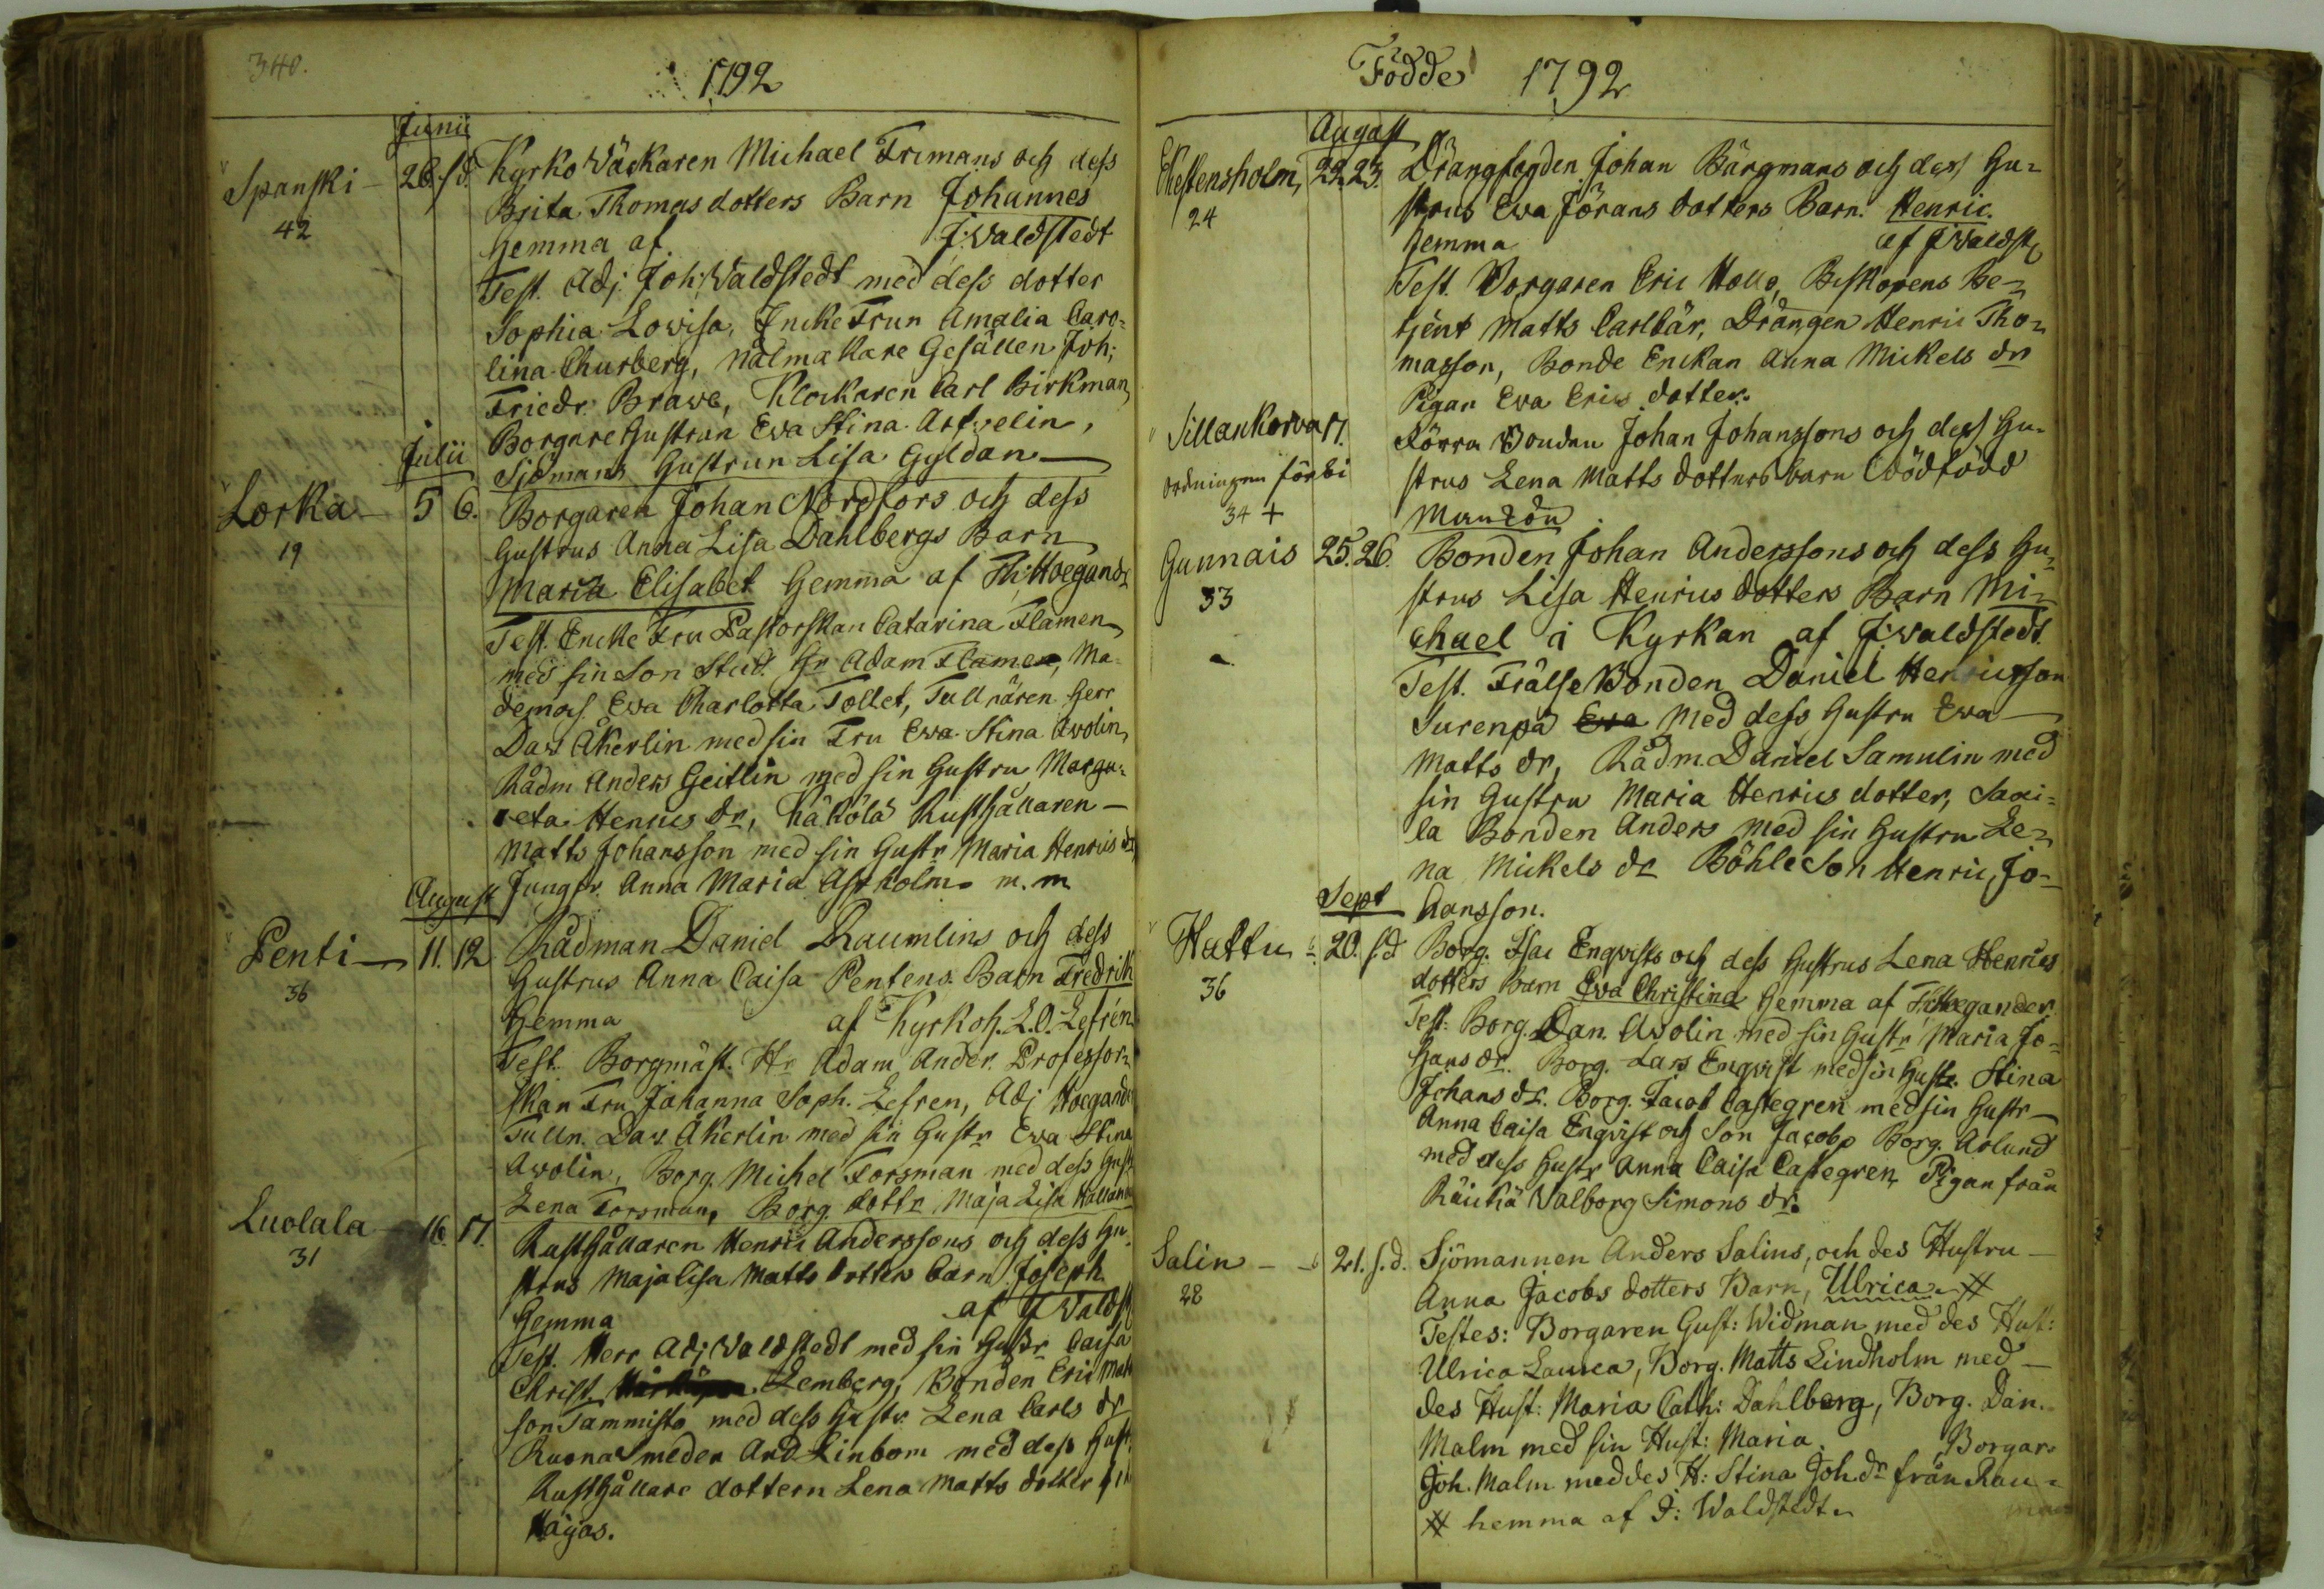 340.
1792
Junii
Spanski — 26. s.d. Kyrko Väckaren Michael Frimans och dess
42
Brita Thomas dotters Barn Johannes
Hemma af J: Waldstedt
Test. Adj. Joh: Waldstedt med dess dotter
Sophia Lowisa, Encke Frun Amalia Caro-
lina Churberg, Nålmakare Gesällen Joh:
Friedr. Brawe, Klockaren Carl Birkman,
Borgare Hustrun Ewa Stina Arfvelin,
Sjömans Hustrun Lisa Gyldan —
Julii
Lorka — 5 6. Borgaren Johan Nordfors och dess
19
Hustrus Anna Lisa Dahlbergs Barn
Maria Elisabet Hemma af Th: Hoegand.
Test. Encke Fru Pastorskan Catarina Flamen
med sin Son Stud. Hr Adam Flamen, Ma-
demois. Ewa Charlotta Tollet, Tullnären Herr
Dav. Åkerlin med sin Fru Ewa Stina Avolin,
Rådm Anders Geitlin med sin Hustru Marga-
reta Henrics dr, Käköla Rusthållaren —
Matts Johansson med sin Hustr Maria Henrics dr
Jungfr. Anna Maria Asxholm m. m.
August
Penti — 11. 12 Rådman Daniel Raumlins och dess
36
Hustrus Anna Caisa Pentens Barn Fredrik
Hemma af Kyrkoh. L. O. Lefrén
Test. Borgmäst. Hr Adam Ander. Professor-
skan Fru Johanna Soph. Lefren, Adj Hoegand.
Tulln. Dav. Åkerlin med sin Hustr Ewa Stina
Avolin, Borg. Michel Forsman med dess Hust
Lena Forsman, Borg. dottr Maja Lisa
Luolala — 16. 17. Rusthållaren Henric Anderssons och dess Hu-
31
strus Maja Lisa Matts dotters barn Joseph
Hemma af J Waldst
Test. Herr Adj Waldstedt med sin Hustr Caisa
Christ. Lemberg, Bonden Eric Mats
son Tammisto med dess Hustr. Lena Carls dr
Ruona Smeden And. Linbom med dess Hust.
Rusthållare dottern Lena Matts dotter
Häyäs.
Födde 1792
August
Kestensholm, 22. 23. Drängfogden Johan Bärgmans och dess Hu-
24
strus Ewa Jörans dotters Barn. Henric.
Hemma af J Waldst
Test. Borgaren Eric Hollo, Biskopens Be-
tjent Matts Carlbär, Drängen Henric Tho-
masson, Bonde Enckan Anna Mickels dr
Pigan Ewa Erics dotter.
Sillankorva 17. Körra Bonden Johan Johanssons och dess Hu-
ordningen förbi
strus Lena Matts dotters barn Dödfödd
34 +
Mankön
Gunnais 25. 26. Bonden Johan Anderssons och dess Hu-
33
strus Lisa Henrics dotters Barn Mi-
chael i Kyrkan af J: Waldstedt.
Test. Frälse Bonden Daniel Henricsson
Surenpä Ewa med dess Hustru Ewa —
Matts dr, Rådm. Daniel Samulin med
sin Hustru Maria Henrics dotter, Saxi-
la Bonden Anders med sin Hustru Le-
na Mickels dr Böhle Son Henric Jo-
hansson.
Sept
Hattu 20. s.d Borg. Isac Enqvists och dess Hustrus Lena Henrics
36
dotters Barn Ewa Christina Hemma af Th: Hoegander.
Test: Borg. Dan. Avolin med sin Hustr Maria Jo-
hans dr. Borg. Lars Enqvist med sin Hustr. Stina
Johans dr. Borg. Jacob Castegren med sin Hustr —
Anna Caisa Enqvist och Son Jacob, Borg. Aslund
med dess Hustr Anna Caisa Castegren, Pigan från
Räickä Walborg Simons dr.
Salin — 21. s.d. Sjömannen Anders Salins, och des Hustru —
28
Anna Jacobs dotters Barn, Ulrica #
Testes: Borgaren Gust: Widman med des Hust:
Ulrica Laurea, Borg. Matts Lindholm med —
des Hust: Maria Cath: Dahlberg, Borg. Dan.
Malm med sin Hust: Maria. Borgar.
Joh. Malm med des H: Stina Joh. dr från Rau-
# hemma af J: Waldstedt. mo